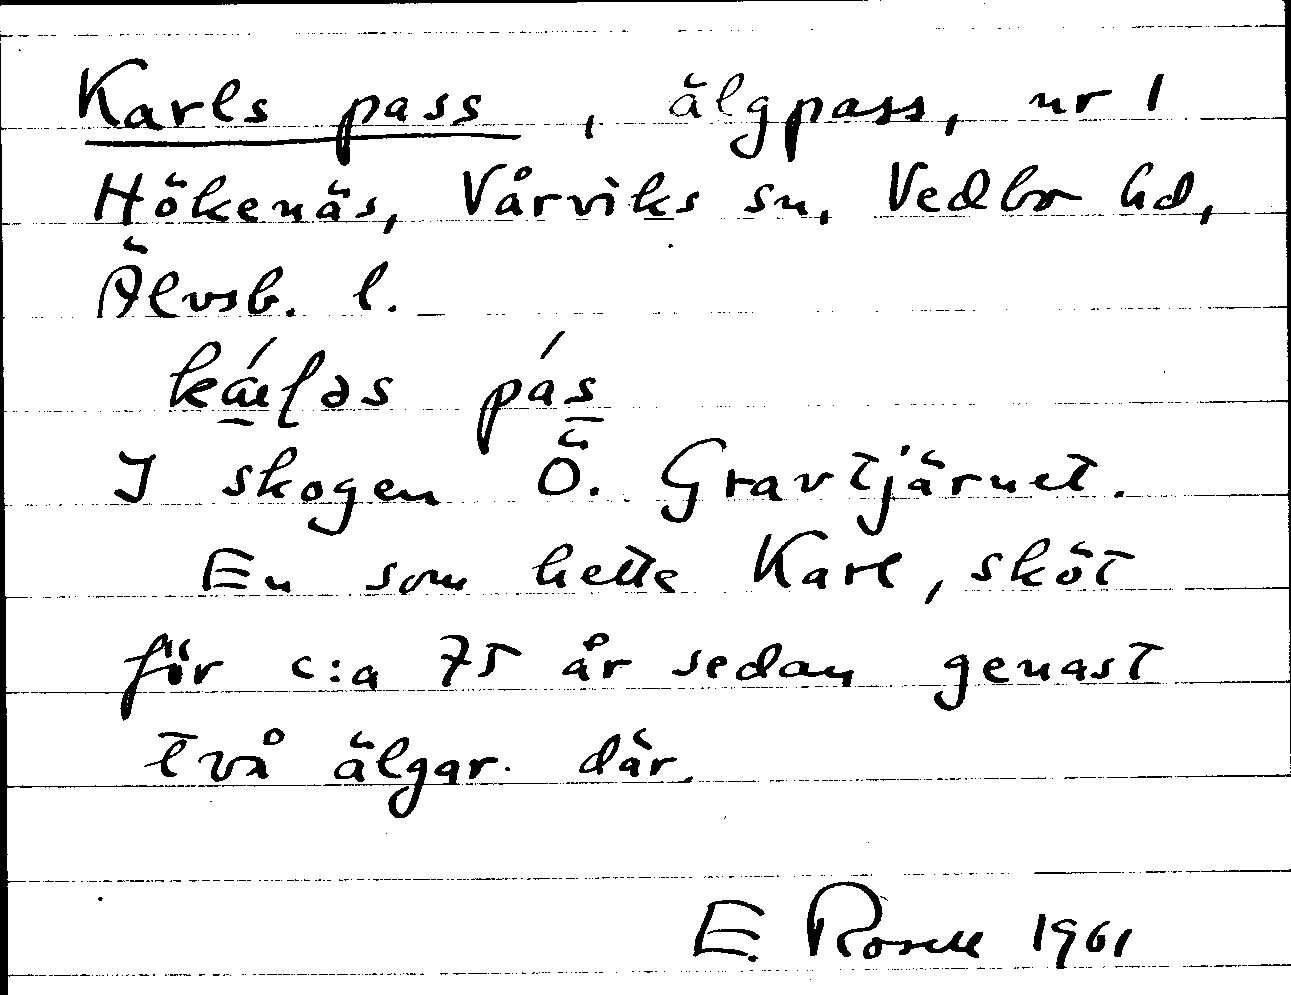 Karls pass, älgpass, nr 1
Hökenäs, Vårviks sn, Vedbo hd,
Älvsb. l.
pás
I skogen Ö. Gravtjärnet.
En som hette Karl, sköt
för c:a 75 år sedan genast
två älgar där.
E. Rosell 1961